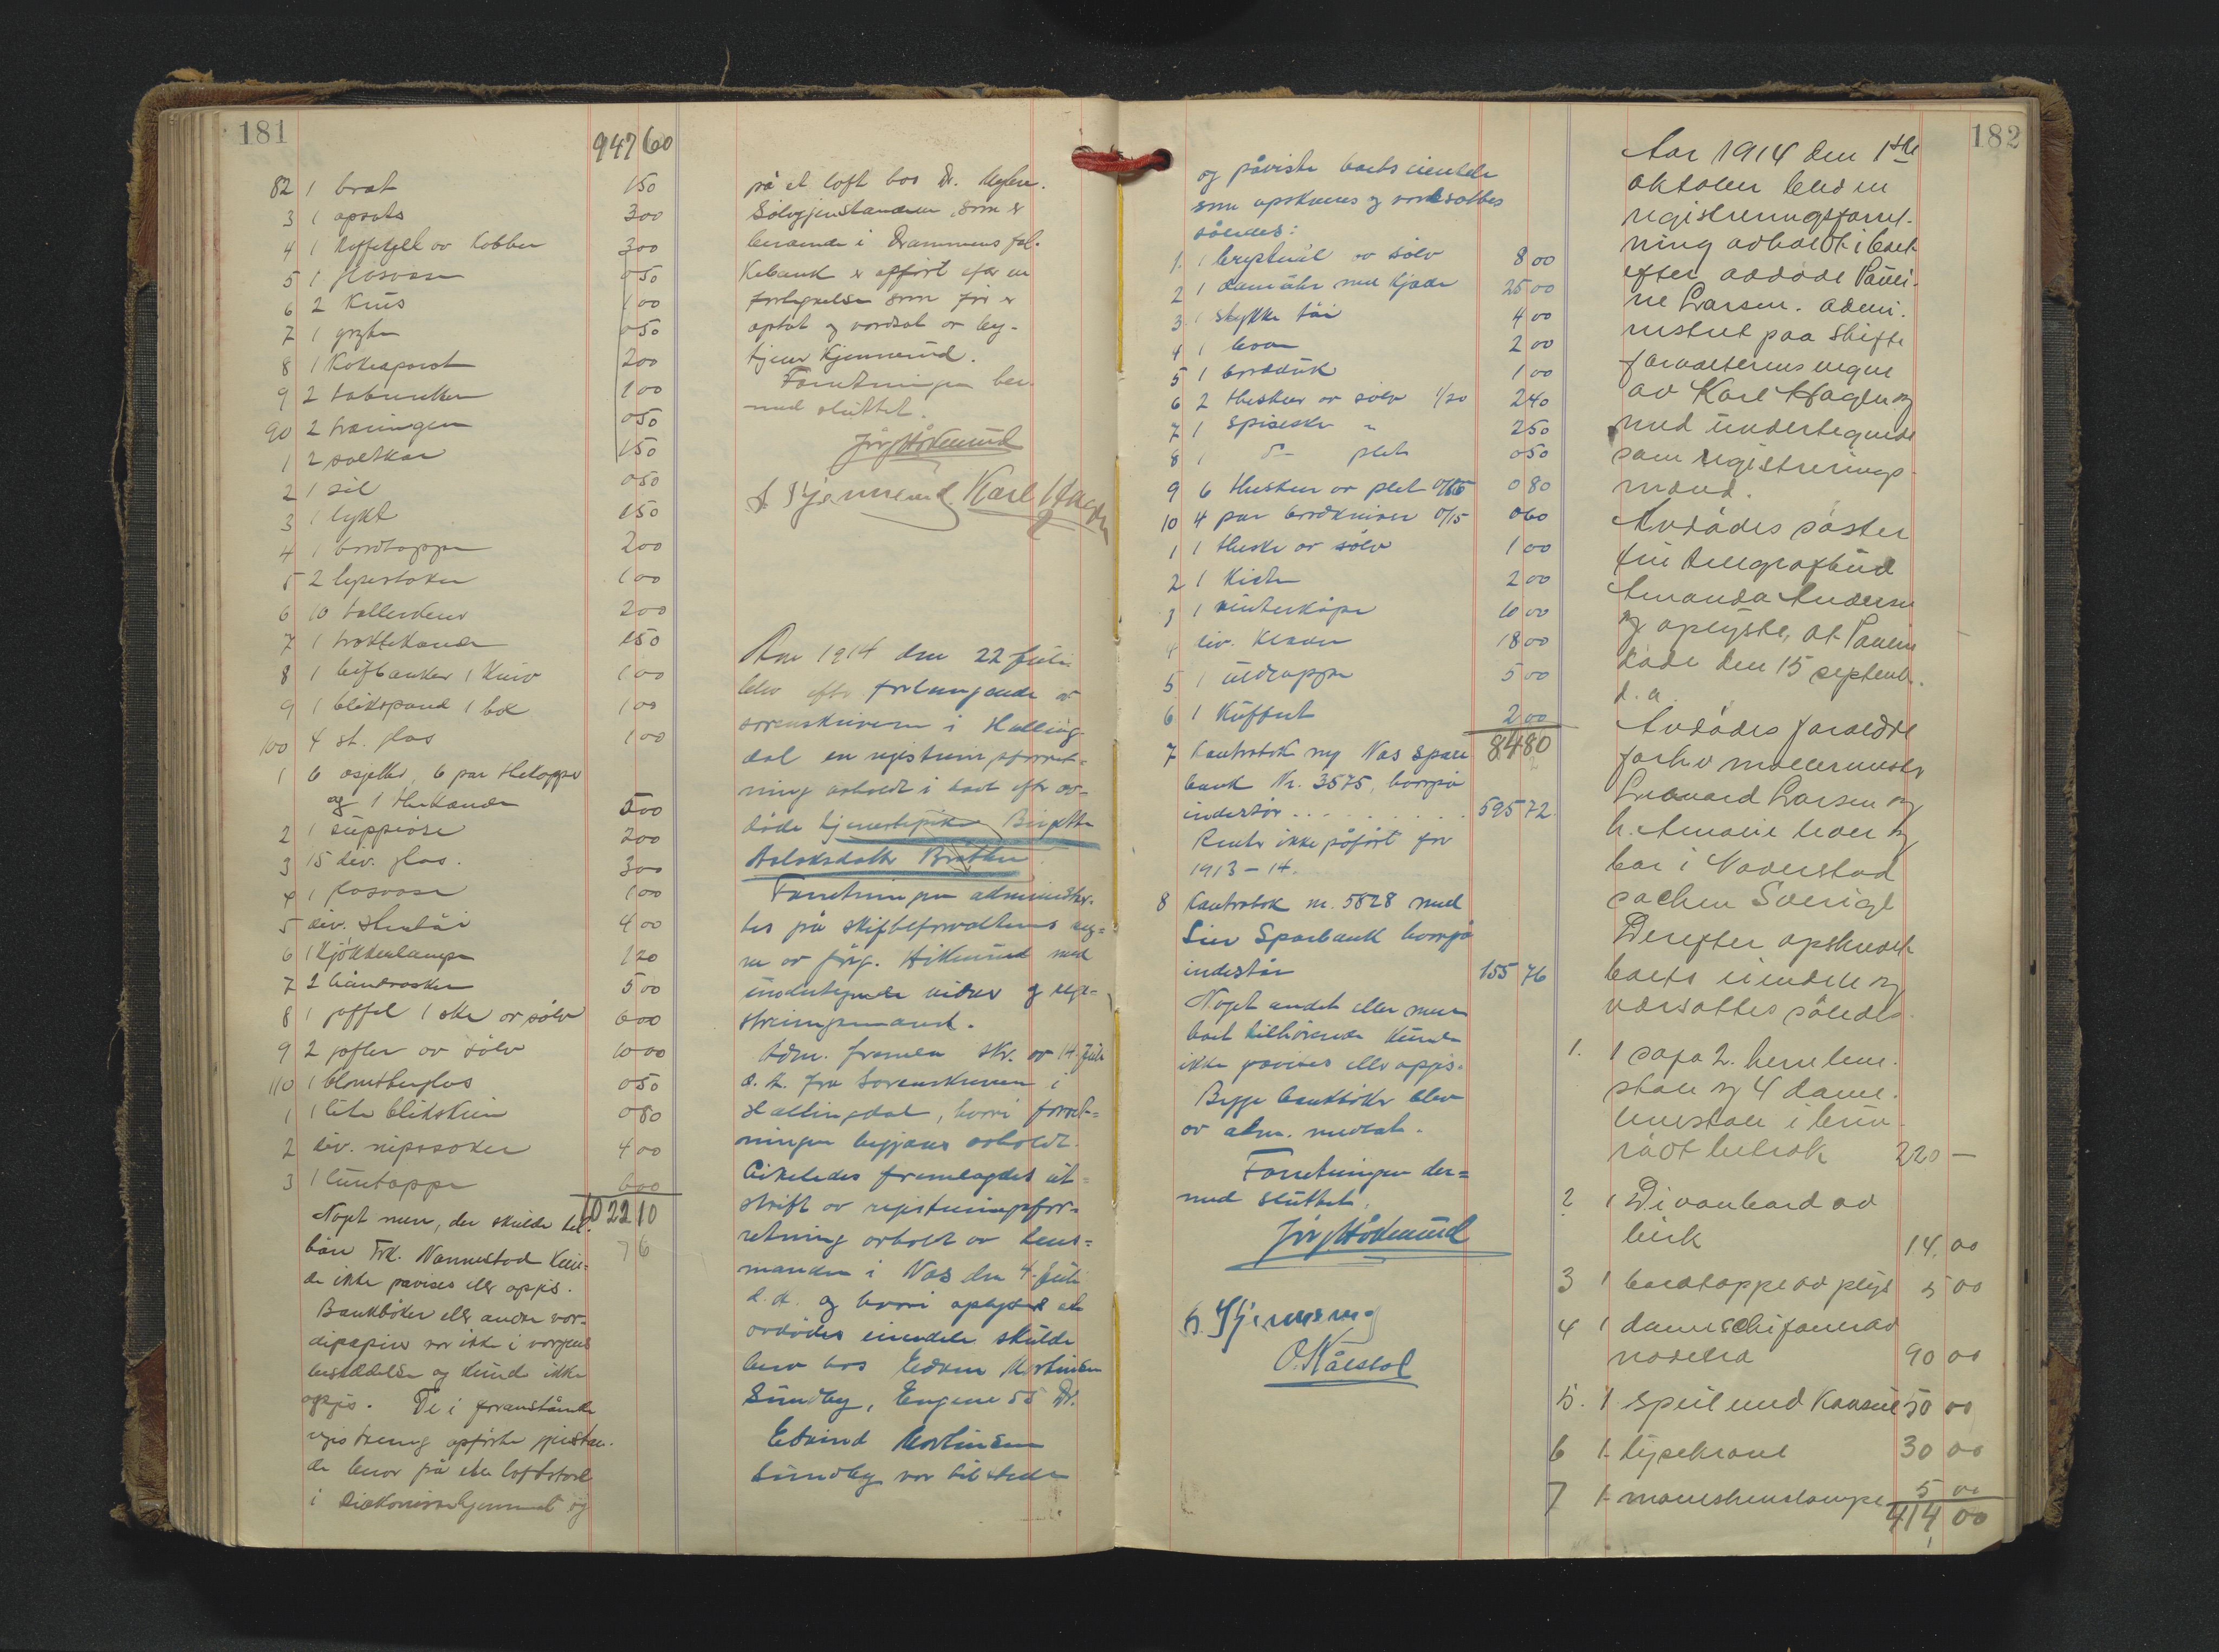 181
947 60
82 1 brat 150
3 1 opsats 300
4 1 Kaffekjel av kobber 300
5 1 050
6 2 Krus 100
7 1 gryte 050
8 1 Kokeaparat 200
9 2 100
90 2 050
1 2 saltkar 150
2 1 sil 050
3 1 lykt 150
4 1 bordteppe 200
5 2 lysestaker 100
6 10 tallerkener 200
7 1 traktekande 150
8 1 bifbanker 1 kniv 100
9 1 blikspand 1 100
100 4 st. glas 100
1 6 asjetter, 6 par thekopper
og 1 thekande 500
2 1 suppeøse 200
3 15 div. glas. 300
4 1 100
5 div. stentøi 400
6 1 kjøkkenlampe 120
7 2 haandvesker 500
8 1 gaffel 1 ske av sølv 600
9 2 gafler av sølv 1000
110 1 blomsterglas 050
1 1 lite blikskrin 080
2 div. nipssaker 400
3 1 600
1022 10
Noget mere, der skulde til-
høre Frk. Nannestad kun-
de ikke påvises eller opgis.
Bankbøker eller andre vær-
dipapirer var ikke i vergens
besiddelse og kunde ikke
opgis. De i foranstående
registrering opførte gjenstan-
de beror på et loftsrom
i Diakonissehjemmet og
76
på et loft hos Dr.
Sølvgjenstandene, som er
beroende i Drammens fol-
kebank er opført efter en
fortegnelse som før er
optat og verdsat av
Kjennerud.
Forretningen der-
med sluttet.
Jørg Hökerud
A Kjennerud Karl Hagen
Aar 1914 den 22 juli
blev efter forlangende av
sorenskriveren i Halling-
dal en registreringsforret-
ning avholdt i boet efter av-
døde tjenestepike Birgitte
Aslaksdatter Bråten.
Forretningen administrer-
tes på skifteforvalterens veg-
ne av Jørg. Hökerud med
undertegnede vidner og regi-
streringsmænd.
Adm. fremla skr. av 14 juli
d. å. fra Sorenskriveren i
Hallingdal, hvori forret-
ningen begjæres avholdt.
Likeledes fremlagdes ut-
skrift av registreringsfor-
retning avholdt av lens-
manden i Nes den 4. juli
d. å. og hvori oplystes at
avdødes eiendele skulde
bero hos Edvin Mortinsen
Sundby, Engene 55 Dr.
Edvind Mortinsen
Sundby var tilstede
og påviste boets eiendele
som opskreves og verdsattes
således:
1. 1 brystnål av sølv 8 00
2 1 dameuhr med kjæde 25 00
3 1 stykke tøi 4 00
4 1 2 00
5 1 bordduk 1 00
6 2 theskeer av sølv 1/20 2 40
7 1 spiseske " 2 50
8 1 do plet 0 50
9 6 theskeer av plet 0 80
10 4 par bordkniver 0/15 0 60
1 1 theske av sølv 1 00
2 1 kiste 2 00
3 1 vinterkåpe 10 00
4 div. klæder 18 00
5 1 uldteppe 5 00
6 1 kuffert 2 00
84 80
7 Kontrabok Nes Spare
bank Nr. 3575, hvorpå
indestår . . . . . . . . 595 72
Renter ikke påført for
1913 – 14.
8 Kontrabok nr. 5828 med
Lier Sparbank hvorpå
indestår 155 76
Noget andet eller mere
boet tilhørende kunde
ikke påvises eller opgis.
Begge bankbøker blev
av adm. medtat.
Forretningen der-
med sluttet.
Jørg Hökerud
O. Kålstad
182
Aar 1914 den 1ste
oktober blev en
registreringsforret-
ning avholdt i boet
efter avdøde Pauli-
ne Larsen. Admi-
nistrert paa Skifte
forvalterens vegne
av Karl Hagen og
med undertegnede
som registrerings-
mænd.
Avdødes søster
fru telegrafbud
Amanda Andersen
og oplyste, at Pauline
døde den 15 septemb.
d. a.
Avdødes forældre
fhv møllermester
Leonard Larsen og
h. Amalie lever og
bor i Vaderstad
sochen Sverige
Derefter opskrevet
boets eiendele og
værsattes således.
1. 1 sofa 2. herre lene-
stole og 4 dame-
lenestole i brun-
rødt betræk 220 –
2 1 Divanbord av
birk 14. 00
3 1 bordteppe av plys 5 00
4 1 dameschifoner av
nødetræ 90 00
5. 1 speil med konsol 50 00
6 1. lysekrone 30 00
7 1. maneskinslampe 5 00
414 00